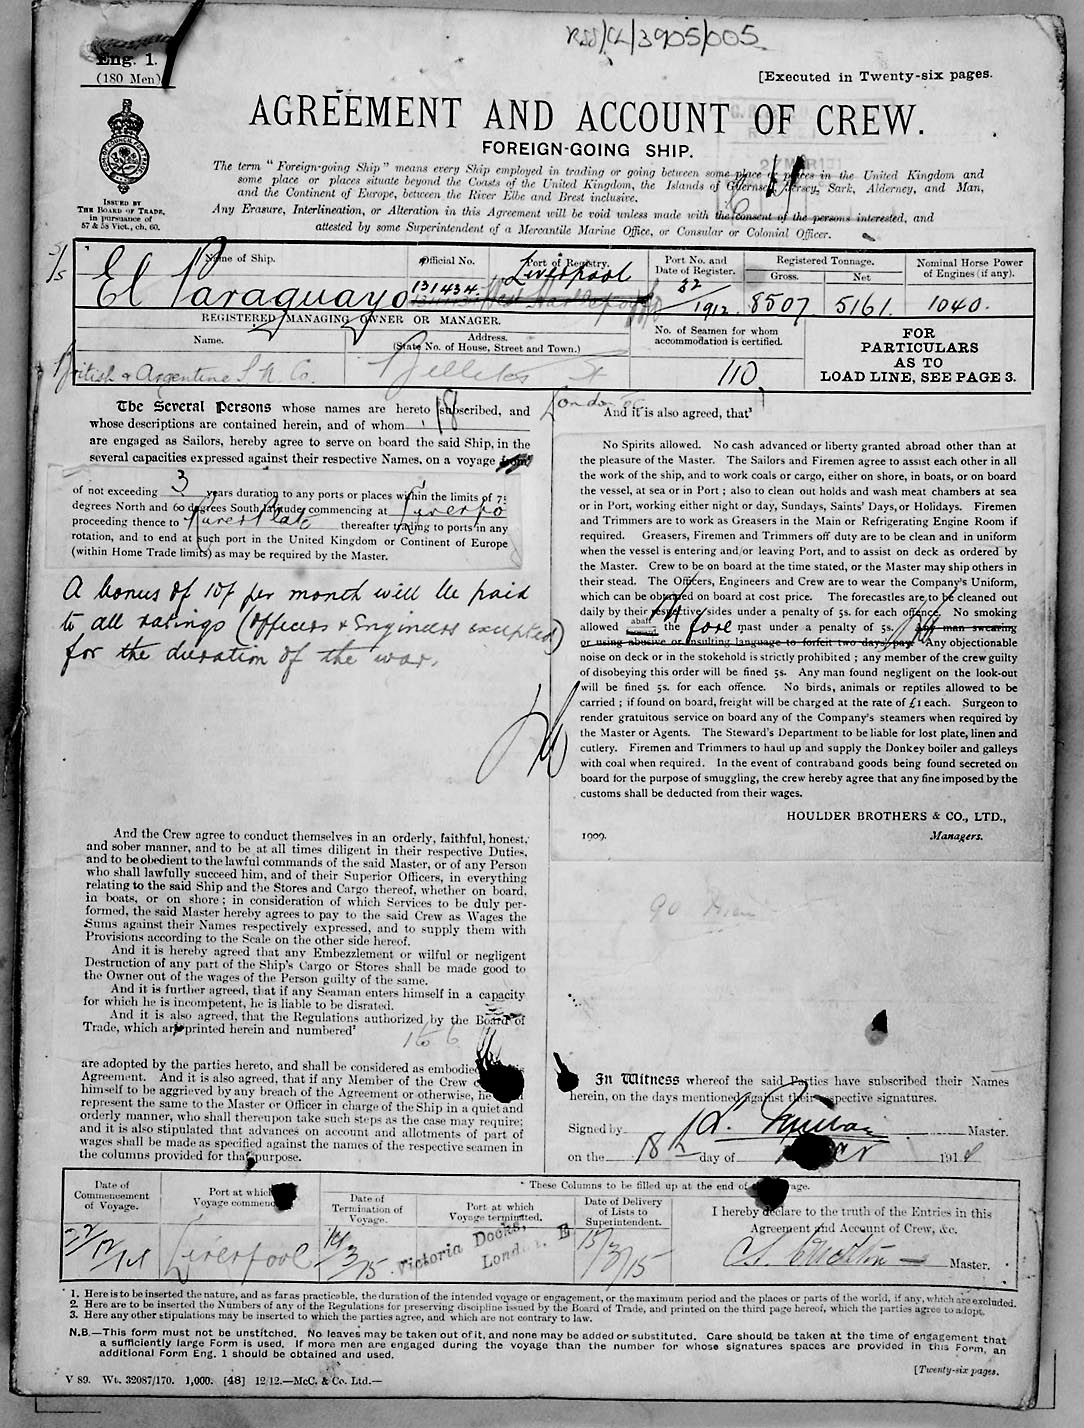 RSS/CL/3905/005
Eng. 1.
(180 Men)
[Executed in Twenty-six pages.
AGREEMENT AND ACCOUNT OF CREW.
FOREIGN-GOING SHIP.
ISSUED BY
THE BOARD OF TRADE,
in pursuance of
57 & 58 Vict., ch. 60.
The term "Foreign-going Ship" means every Ship employed in trading or going between some place or places in the United Kingdom and
some place or places situate beyond the Coasts of the United Kingdom, the Islands of Guernsey, Jersey, Sark, Alderney, and Man,
and the Continent of Europe, between the River Elbe and Brest inclusive.
Any Erasure, Interlineation, or Alteration in this Agreement will be void unless made with the consent of the persons interested, and
attested by some Superintendent of a Mercantile Marine Office, or Consular or Colonial Officer.
Name of Ship.
El Paraguayo
Official No.
131434.
Port of Registry.
Liverpool
West Hartlepool
Port No. and
Date of Register.
32
/1912.
Registered Tonnage.
Gross.
Net
8507.
5161.
Nominal Horse Power
of Engines (if any).
1040.
REGISTERED MANAGING OWNER OR MANAGER.
Name.
British & Argentine S N. Co.
Address.
(State No. of House, Street and Town.)
Billiter St
London EC
No. of Seamen for whom
accommodation is certified.
110
FOR
PARTICULARS
AS TO
LOAD LINE, SEE PAGE 3.
The Several Persons whose names are hereto subscribed, and
whose descriptions are contained herein, and of whom 18
are engaged as Sailors, hereby agree to serve on board the said Ship, in the
several capacities expressed against their respective Names, on a voyage from
of not exceeding 3 years duration to any ports or places within the limits of 75
degrees North and 60 degrees South latitude commencing at Liverpo
proceeding thence to River Plate thereafter trading to ports in any
rotation, and to end at such port in the United Kingdom or Continent of Europe
(within Home Trade limits) as may be required by the Master.
A bonus of 10/ per month will be paid
to all ratings (Officers & Engineers excepted)
for the duration of the war.
And the Crew agree to conduct themselves in an orderly, faithful, honest,
and sober manner, and to be at all times diligent in their respective Duties,
and to be obedient to the lawful commands of the said Master, or of any Person
who shall lawfully succeed him, and of their Superior Officers, in everything
relating to the said Ship and the Stores and Cargo thereof, whether on board,
in boats, or on shore; in consideration of which Services to be duly per-
formed, the said Master hereby agrees to pay to the said Crew as Wages the
Sums against their Names respectively expressed, and to supply them with
Provisions according to the Scale on the other side hereof.
And it is hereby agreed that any Embezzlement or wilful or negligent
Destruction of any part of the Ship's Cargo or Stores shall be made good to
the Owner out of the wages of the Person guilty of the same.
And it is further agreed, that if any Seaman enters himself in a capacity
for which he is incompetent, he is liable to be disrated.
And it is also agreed, that the Regulations authorized by the Board of
Trade, which are printed herein and numbered²
1 to 6
are adopted by the parties hereto, and shall be considered as embodied
Agreement. And it is also agreed, that if any Member of the Crew
himself to be aggrieved by any breach of the Agreement or otherwise, he
represent the same to the Master or Officer in charge of the Ship in a quiet and
orderly manner, who shall thereupon take such steps as the case may require;
and it is also stipulated that advances on account and allotments of part of
wages shall be made as specified against the names of the respective seamen in
the columns provided for that purpose.
And it is also agreed, that³
No Spirits allowed. No cash advanced or liberty granted abroad other than at
the pleasure of the Master. The Sailors and Firemen agree to assist each other in all
the work of the ship, and to work coals or cargo, either on shore, in boats, or on board
the vessel, at sea or in Port; also to clean out holds and wash meat chambers at sea
or in Port, working either night or day, Sundays, Saints' Days, or Holidays. Firemen
and Trimmers are to work as Greasers in the Main or Refrigerating Engine Room if
required. Greasers, Firemen and Trimmers off duty are to be clean and in uniform
when the vessel is entering and/or leaving Port, and to assist on deck as ordered by
the Master. Crew to be on board at the time stated, or the Master may ship others in
their stead. The Officers, Engineers and Crew are to wear the Company's Uniform,
which can be obtained on board at cost price. The forecastles are to be cleaned out
daily by their respective sides under a penalty of 5s. for each offence. No smoking
allowed abaft the fore mast under a penalty of 5s. Any man swearing
or using abusive or insulting language to forfeit two days' pay. Any objectionable
noise on deck or in the stokehold is strictly prohibited; any member of the crew guilty
of disobeying this order will be fined 5s. Any man found negligent on the look-out
will be fined 5s. for each offence. No birds, animals or reptiles allowed to be
carried; if found on board, freight will be charged at the rate of £1 each. Surgeon to
render gratuitous service on board any of the Company's steamers when required by
the Master or Agents. The Steward's Department to be liable for lost plate, linen and
cutlery. Firemen and Trimmers to haul up and supply the Donkey boiler and galleys
with coal when required. In the event of contraband goods being found secreted on
board for the purpose of smuggling, the crew hereby agree that any fine imposed by the
customs shall be deducted from their wages.
HOULDER BROTHERS & CO., LTD.,
1909.
Managers.
90 Men
In Witness whereof the said Parties have subscribed their Names
herein, on the days mentioned against their respective signatures.
Signed by Master.
on the 18th day of 1914
* These Columns to be filled up at the end of age.
Date of
Commencement
of Voyage.
22/12/14
Port at which
Voyage commenc
Liverpool
Date of
Termination of
Voyage.
14/3/15
Port at which
Voyage terminated.
Victoria Docks,
London, E
Date of Delivery
of Lists to
Superintendent.
15/3/15
I hereby declare to the truth of the Entries in this
Agreement and Account of Crew, &c.
Master.
1. Here is to be inserted the nature, and as far as practicable, the duration of the intended voyage or engagement, or the maximum period and the places or parts of the world, if any, which are excluded.
2. Here are to be inserted the Numbers of any of the Regulations for preserving discipline issued by the Board of Trade, and printed on the third page hereof, which the parties agree to adopt.
3. Here any other stipulations may be inserted to which the parties agree, and which are not contrary to law.
N.B.—This form must not be unstitched. No leaves may be taken out of it, and none may be added or substituted. Care should be taken at the time of engagement that
a sufficiently large Form is used. If more men are engaged during the voyage than the number for whose signatures spaces are provided in this Form, an
additional Form Eng. 1 should be obtained and used.
[Twenty-six pages.
V 89. Wt. 32087/170. 1,000. [48] 12/12.—McC. & Co. Ltd.—